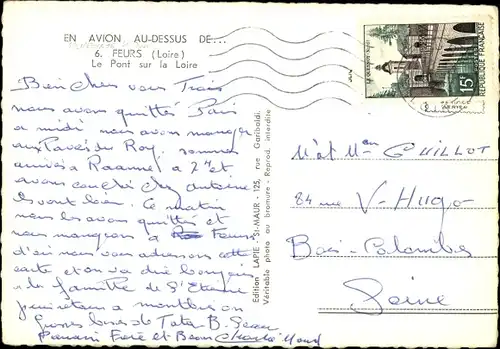 EN AVION AU-DESSUS DE...
6. FEURS (Loire)
Le Pont sur la Loire
Bien chers vous Trois
nous avons quitté Paris
a midi nous avons manger
aux Pavés du Roy. sommes
arrivés a Roanne a 2h et
avons couché chez Antoine
ils vont bien. Ce matin
nous les avons quittés et
nous mangeons a Feurs
d'où nous vous adressons cette
carte et on va dire bonjour
a la famille de St Etienne
Gros baises de Tata B. Jean
Parrain Frère et Beau
Edition LAPIE - St-MAUR - 125, rue Garibaldi.
Véritable photo au bromure - Reprod. interdite
LE QUESNOY
15F
REPUBLIQUE FRANÇAISE
Mr et Me GUILLOT
84 rue V-Hugo
Bois-Colombes
Seine